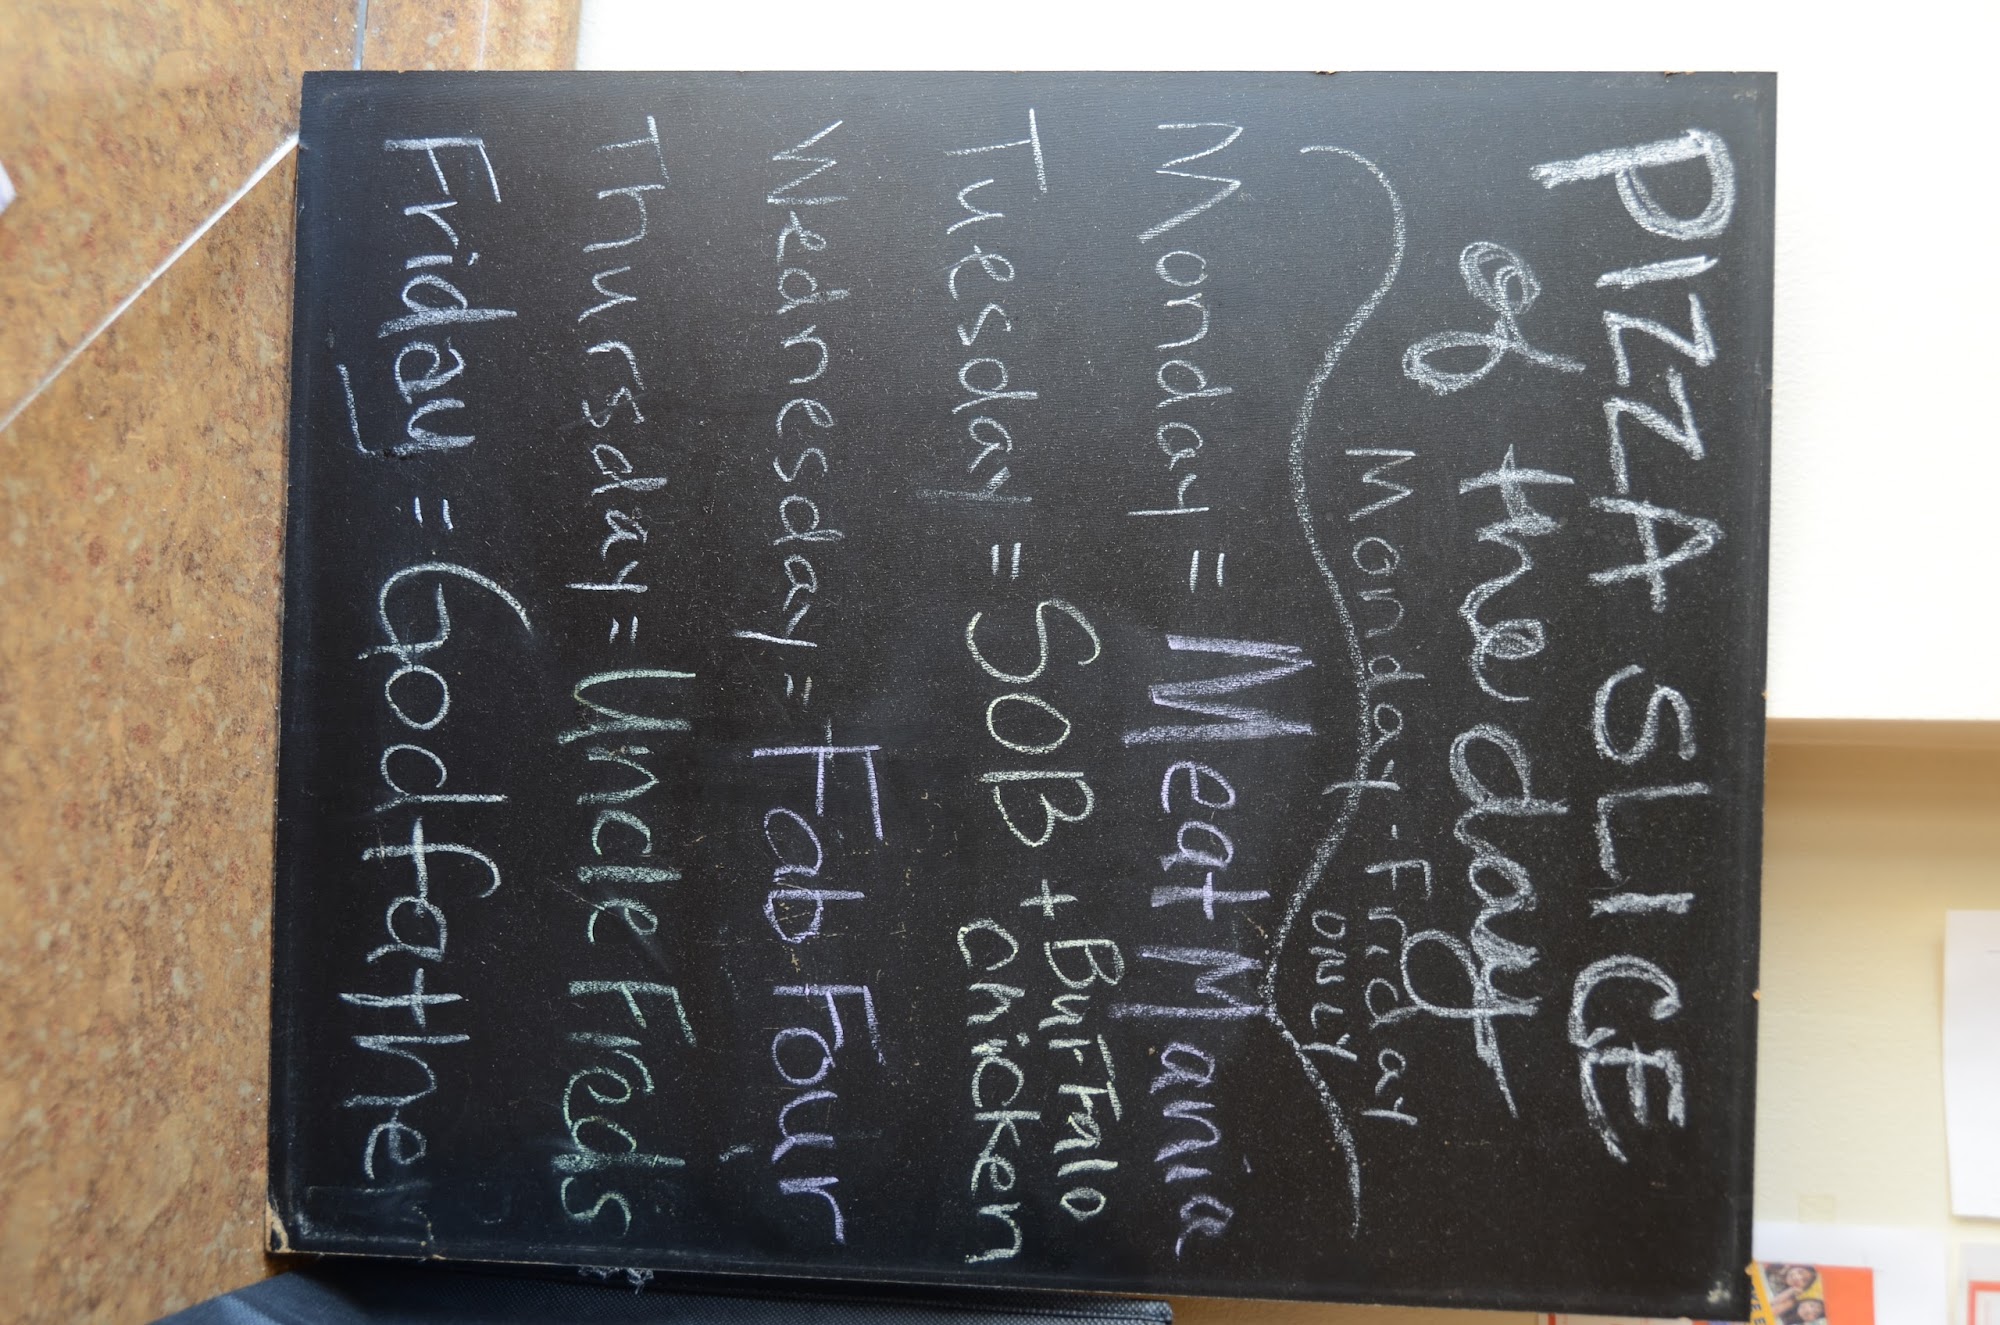 PIZZA SLICE
of the day
Monday - Friday
ONLY
Monday = Meat Mania
Tuesday = SOB + BuFFalo
chicken
Wednesday = Fab Four
Thursday = Uncle Freds
Friday = Godfather